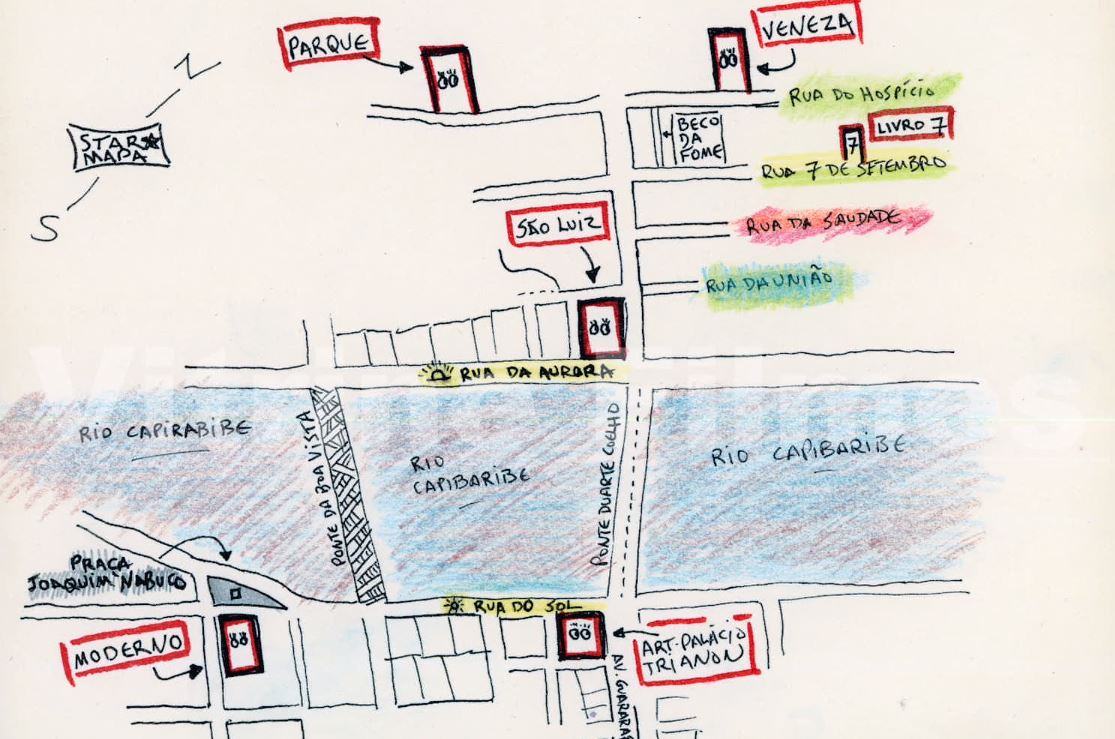 PARQUE
VENEZA
N
STAR★
MAPA
S
RUA DO HOSPÍCIO
BECO
DA
FOME
LIVRO 7
7
RUA 7 DE SETEMBRO
SÃO LUIZ
RUA DA SAUDADE
RUA DA UNIÃO
RUA DA AURORA
RIO CAPIRABIBE
PONTE DA BOA VISTA
RIO
CAPIBARIBE
PONTE DUARTE COELHO
RIO CAPIBARIBE
PRAÇA
JOAQUIM NABUCO
RUA DO SOL
MODERNO
ART-PALÁCIO
TRIANON
AV. GUARARAP